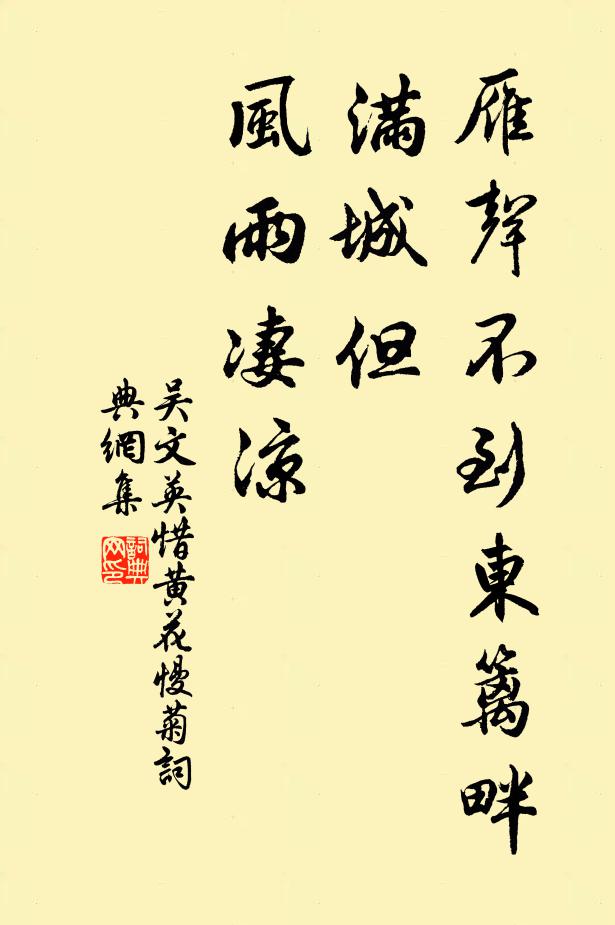 雁聲不到東籬畔
滿城但
風雨凄涼
吴文英惜黄花慢菊詞
典網集
詞典网印